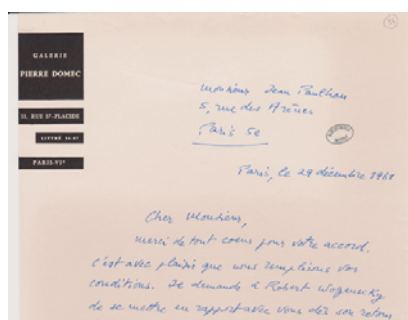 GALERIE
PIERRE DOMEC
33, RUE Sᵗ-PLACIDE
LITTRÉ
PARIS-VIᵉ
Monsieur Jean Paulhan
5, rue des Arènes
Paris 5e
Paris, le 29 décembre
Cher Monsieur,
merci de tout coeur pour votre accord.
C'est avec plaisir que nous remplirons vos
conditions. Je demande à Robert Wogensky
de se mettre en rapport avec vous dès son retour